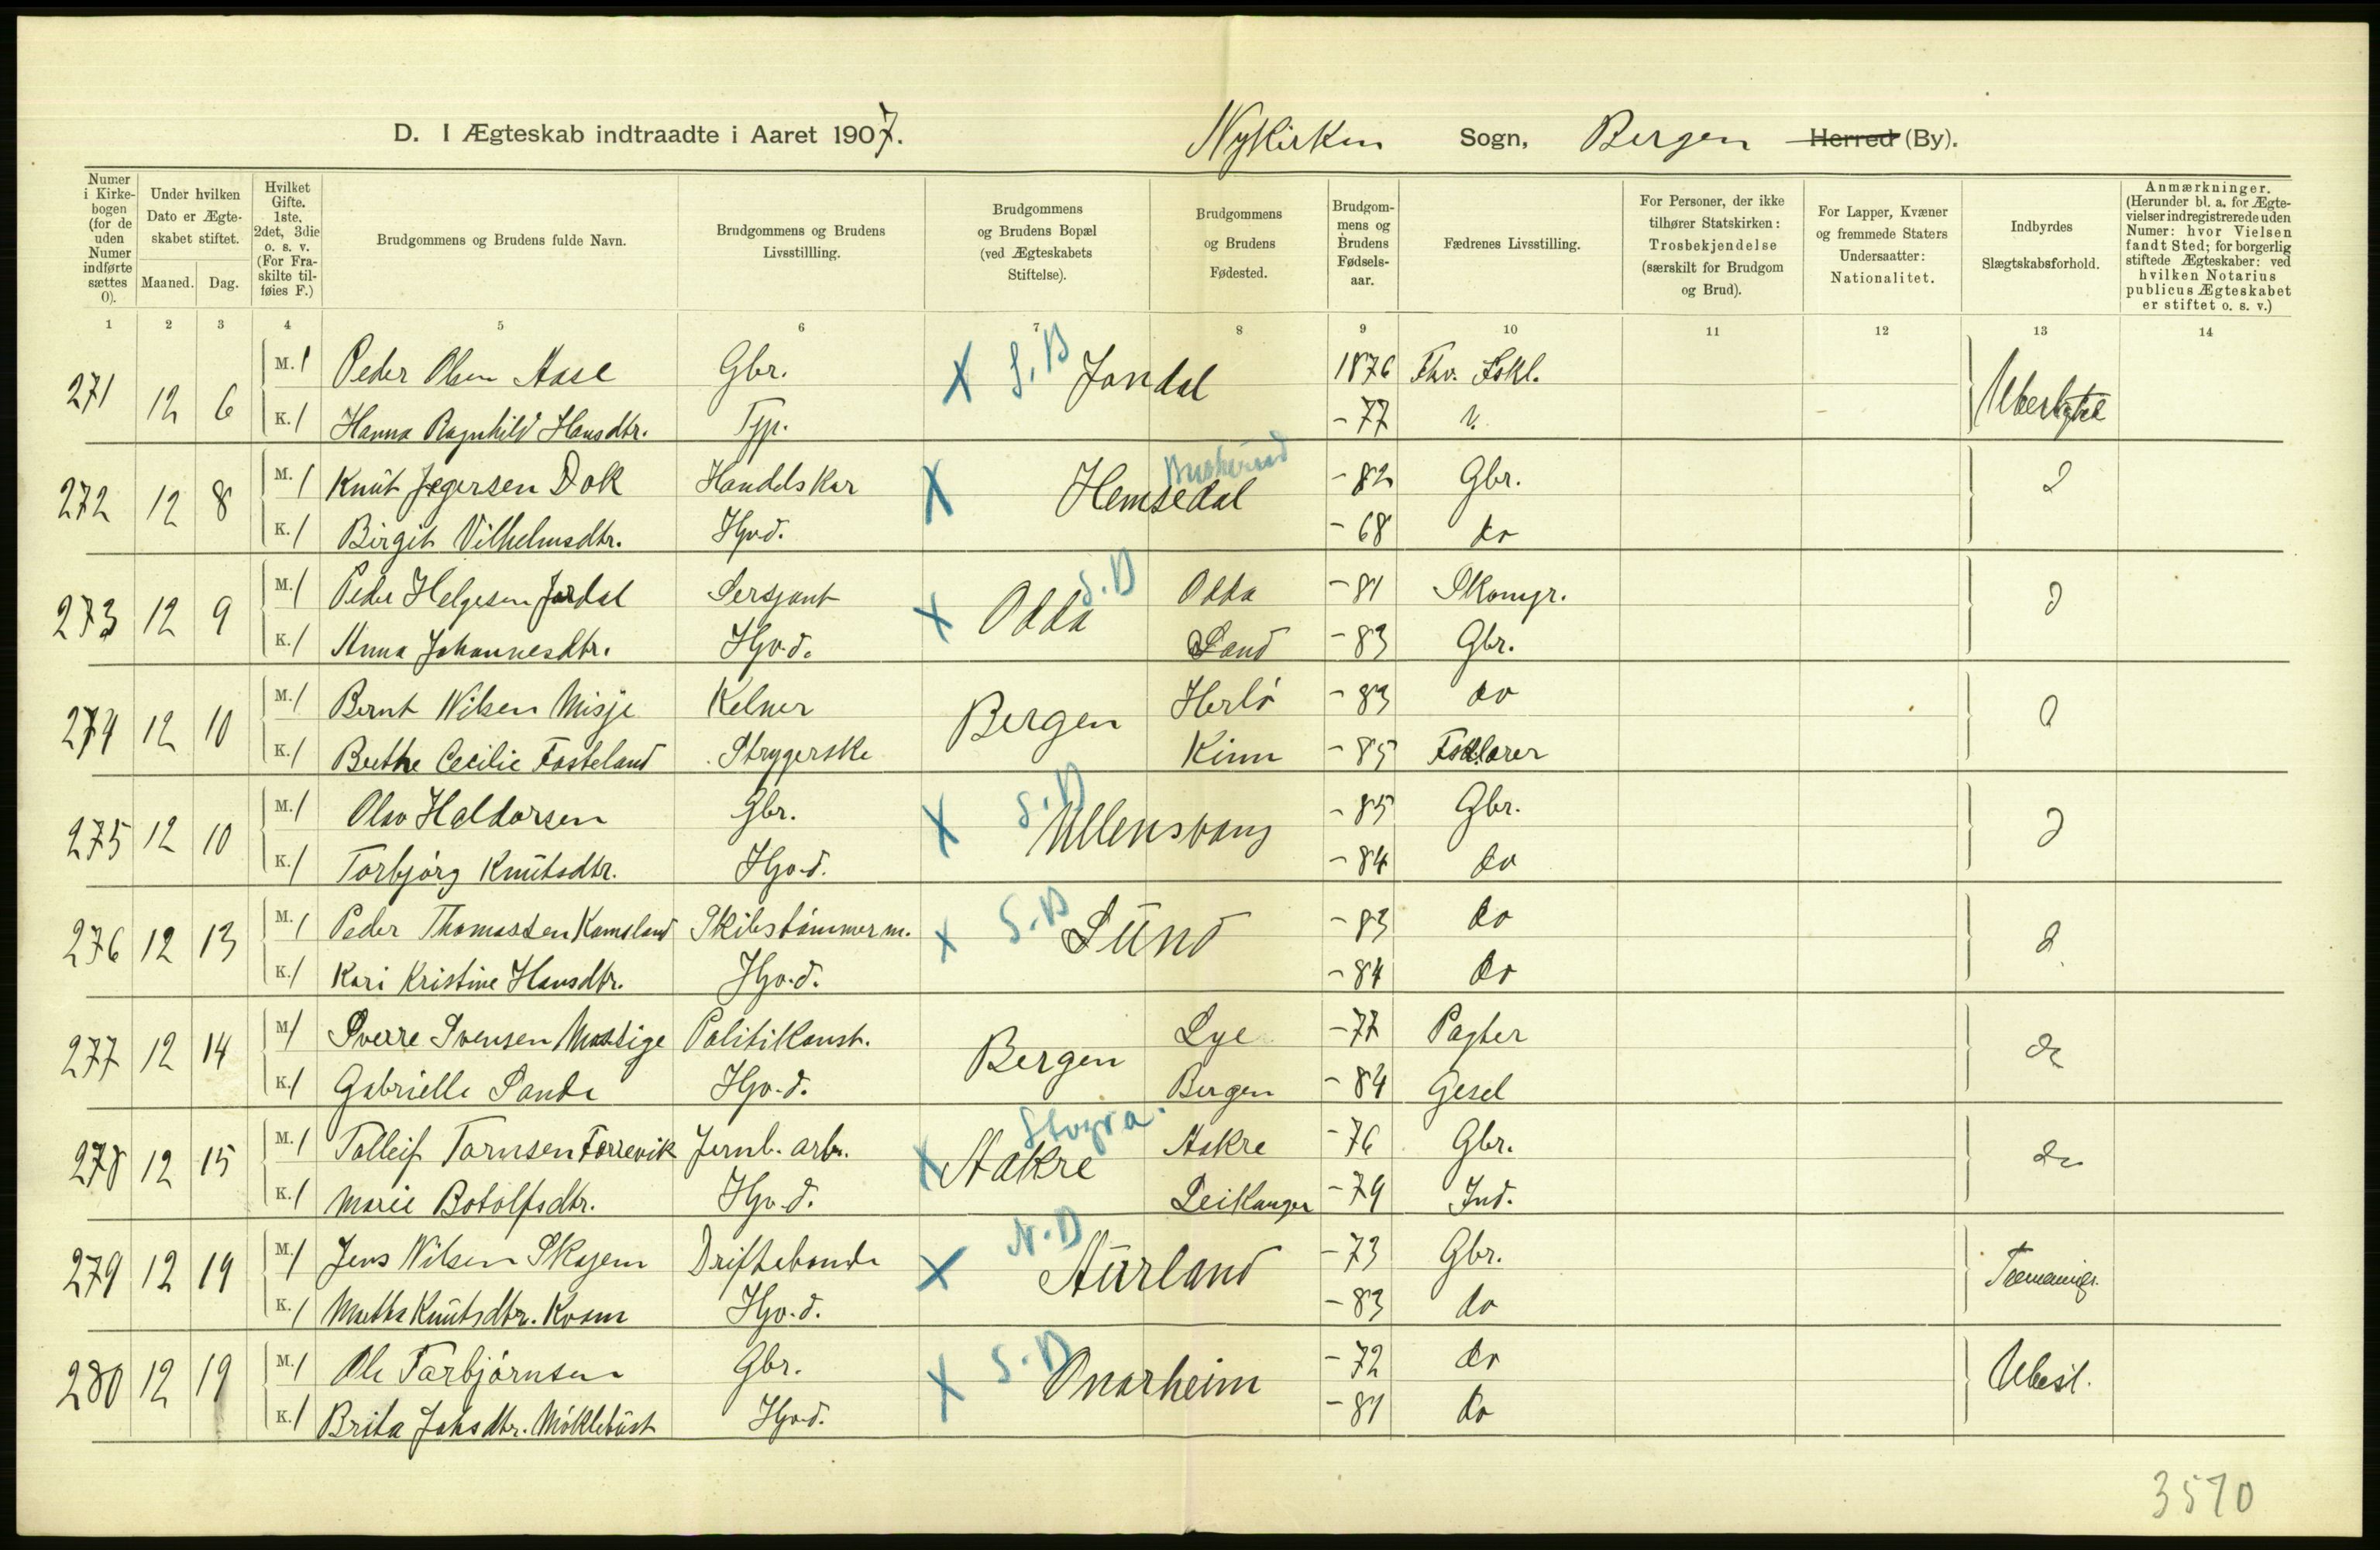 D. I Ægteskab indtraadte i Aaret 1907. Nykirken Sogn, Bergen Herred (By).
Numer i Kirkebogen (for de uden Numer indførte sættes 0).
Under hvilken Dato er Ægteskabet stiftet.
Maaned. Dag.
Hvilket Gifte. 1ste, 2det, 3die o. s. v. (For Fraskilte tilføies F.)
Brudgommens og Brudens fulde Navn.
Brudgommens og Brudens Livsstillling.
Brudgommens og Brudens Bopæl (ved Ægteskabets Stiftelse).
Brudgommens og Brudens Fødested.
Brudgommens og Brudens Fødselsaar.
Fædrenes Livsstilling.
For Personer, der ikke tilhører Statskirken: Trosbekjendelse (særskilt for Brudgom og Brud).
For Lapper, Kvæner og fremmede Staters Undersaatter: Nationalitet.
Indbyrdes Slægtskabsforhold.
Anmærkninger. (Herunder bl. a. for Ægtevielser indregistrerede uden Numer: hvor Vielsen fandt Sted; for borgerlig stiftede Ægteskaber: ved hvilken Notarius publicus Ægteskabet er stiftet o. s. v.)
1 2 3 4 5 6 7 8 9 10 11 12 13 14
271 12 6 M. 1 Peder Olsen Aase Gbr. X S. B Jondal 1876 Fhv. Ubeslgtet
K. 1 Hanna Ragnhild Hansdtr. - 77
272 12 8 M. 1 Knut Jegersen Dok Handelskar X Hemsedal Buskerud - 82 Gbr.
K. 1 Birgit Vilhelmsdtr. Hjv.d. - 68 do
273 12 9 M. 1 Peder Helgesen Jordal Sersjant X Odda S. B Odda - 81 Skomgr.
K. 1 Anna Johannesdtr. Hjv.d. Sand - 83 Gbr.
274 12 10 M. 1 Bernt Nilsen Misje Kelner Bergen Herlö - 83 do
K. 1 Berthe Cecilie Fosteland Strygerske Kinn - 85
275 12 10 M. 1 Olav Haldorsen Gbr. X S. B Ullensvang - 85 Gbr.
K. 1 Torbjörg Knutsdtr. Hjv.d. - 84 do
276 12 13 M. 1 Peder Thomassen Kamsland Skibstömmerm. X S. B Lund - 83 do
K. 1 Kari Kristine Hansdtr. Hjv.d. - 84 do
277 12 14 M 1 Sverre Svensen Politikonst. Bergen Lye - 77 Pagter
K. 1 Gabrielle Sande Hjv.d. Bergen - 84 Gesel
278 12 15 M. 1 Tolleif Tornsen Forrevik Jernb. arb. X Aakre Aakre - 76 Gbr.
K. 1 Marie Botolfsdtr. Hjv.d. Leikanger - 79 Ind.
279 12 19 M. 1 Jens Nilsen Skagem Driftebonde X N. B Aurland - 73 Gbr. Tremenige.
K. 1 Martha Knutsdtr. Kvam Hjv.d. - 83 do
280 12 19 M. 1 Ole Torbjörnsen Gbr. X S. B Onarheim - 72 do Ubesl.
K. 1 Brita Johsdtr. Möklebust Hjv.d. - 81 do
3570